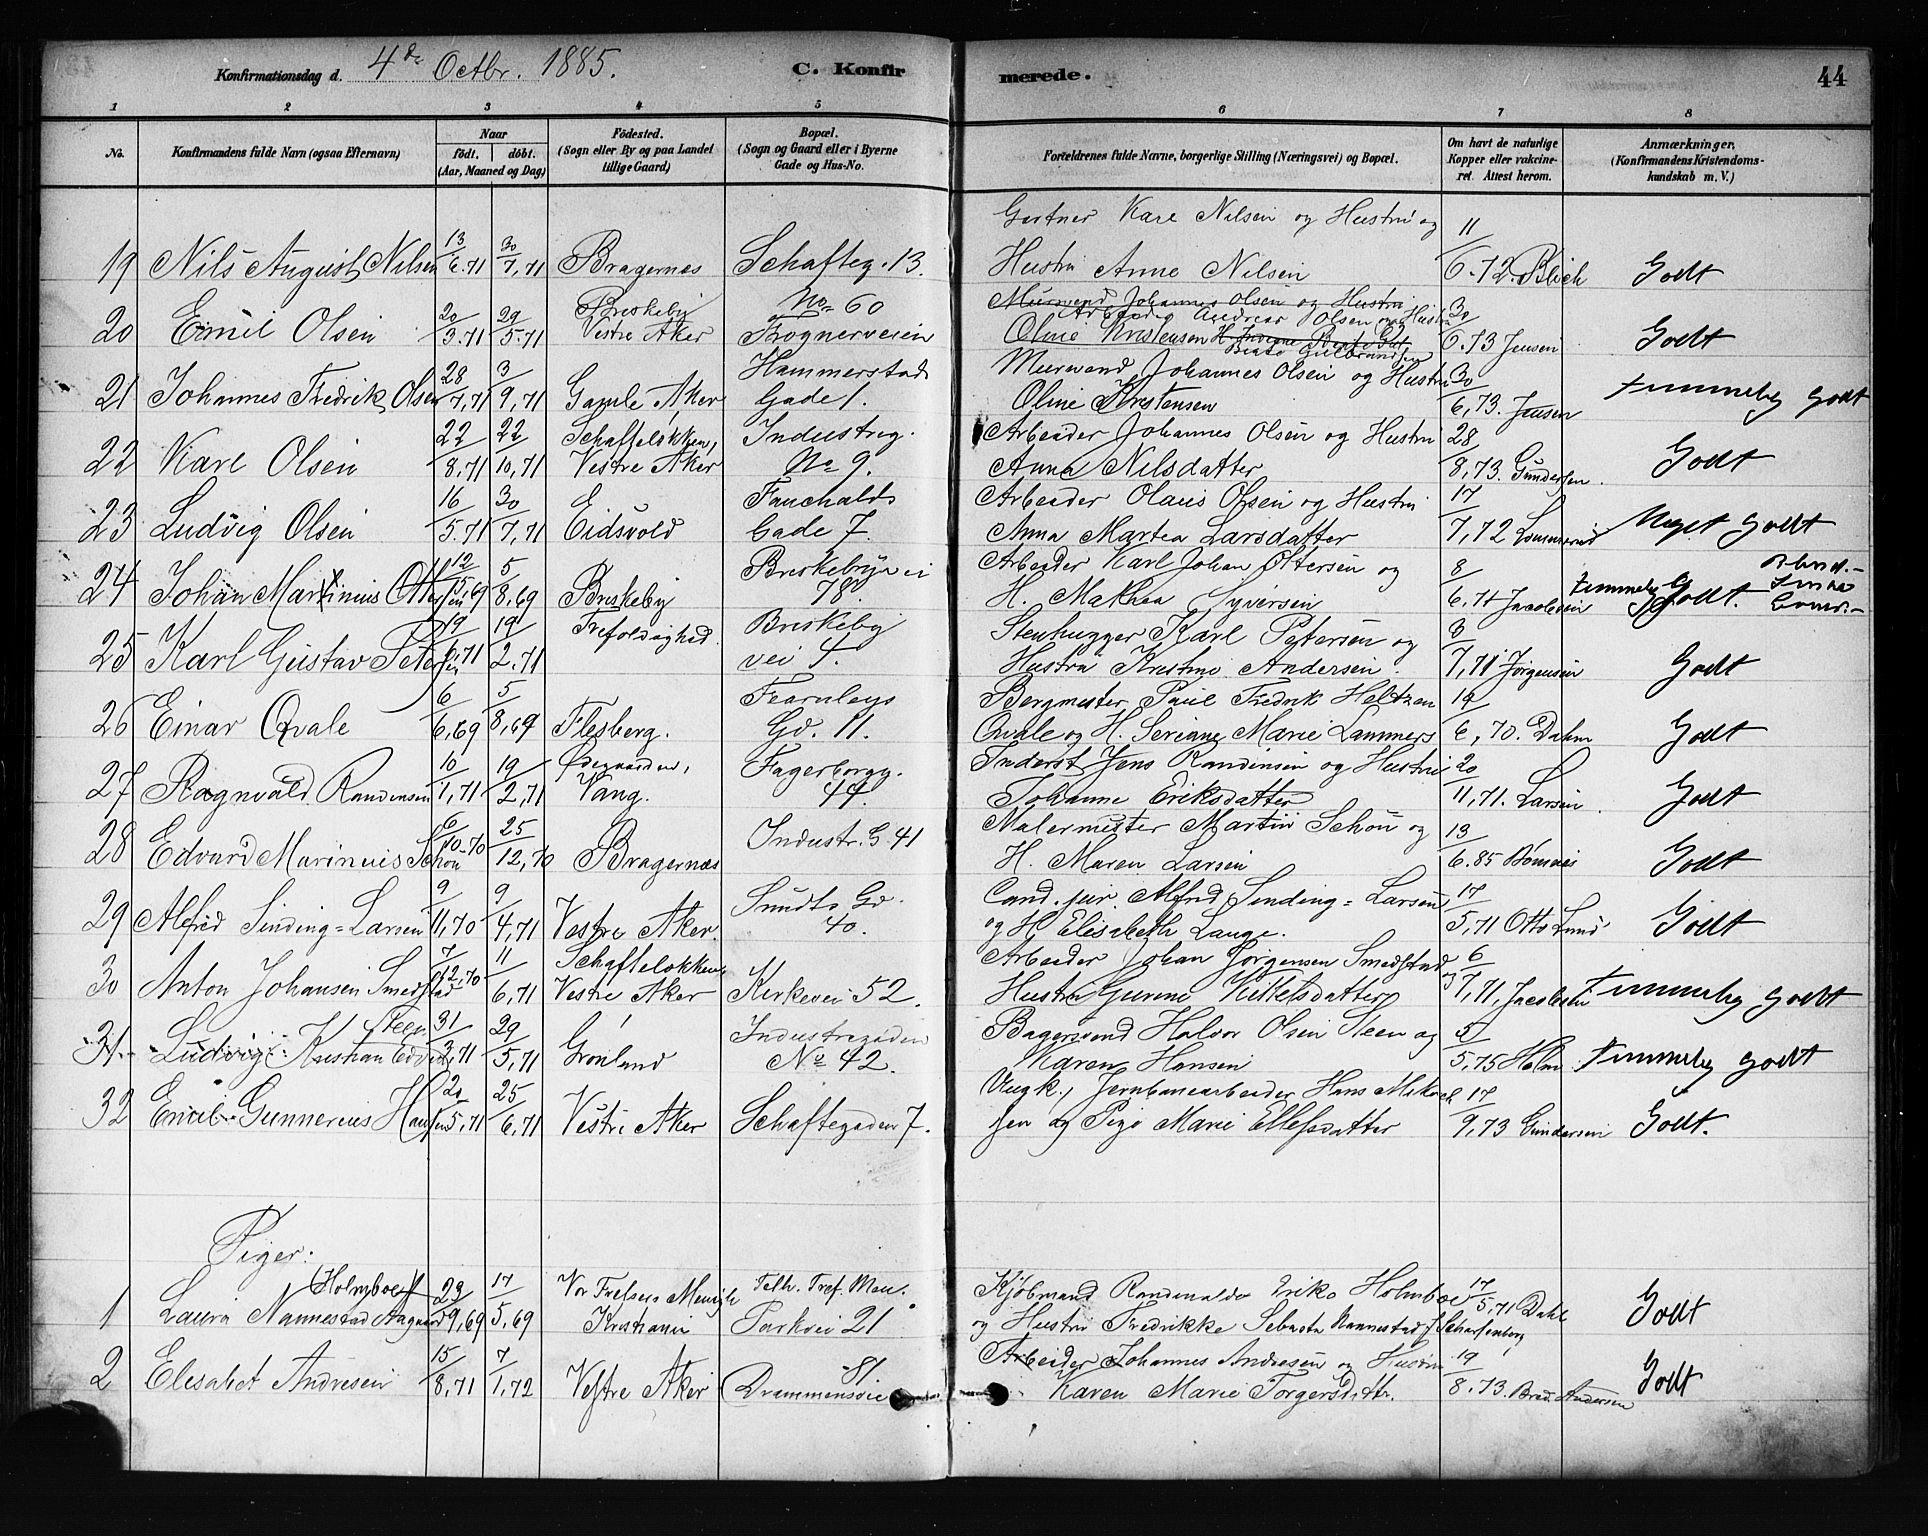 Konfirmationsdag d. 4de Octbr. 1885. C. Konfir merede. 44
1 2 3 4 5 6 7 8
No. Konfirmandens fulde Navn (ogsaa Efternavn) Naar født. døbt. (Aar, Maaned og Dag) Fødested. (Sogn eller By og paa Landet tillige Gaard) Bopæl. (Sogn og Gaard eller i Byerne Gade og Hus-No. Forældrenes fulde Navne, borgerlige Stilling (Næringsvei) og Bopæl. Om havt de naturlige Kopper eller vakcineret. Attest herom. Anmærkninger. (Konfirmandens Kristendomskundskab m. V.)
Gartner Karl Nilsen og Hustru og
19 Nils August Nilsen 13/6.71 30/7,71 Bragernæs Schafteg. 13. Hustru Anne Nilsen 11/6.72 Blich Godt
Briskeby No 60 Murmand Johannes Olsen og Hustru
Arbeider Andreas Olsen og Hustru
20 Emil Olsen 20/3.71 29/5.71 Vestre Aker Frognerveien Oline Kristensen Beate Gulbrandsen 30/6.73 Jensen Godt
Hammerstads Murmand Johannes Olsen og Hustru
21 Johannes Fredrik Olsen 28/7,71 3/9,71 Gamle Aker Gade 1. Oline Kristensen 30/6,73. Jensen Temmelig Godt
Schafteløkken, Industrig. Arbeider Johannes Olsen og Hustru
22 Karl Olsen 22/8,71 22/10,71 Vestre Aker No 9. Anna Nilsdatter 28/8,73. Gundersen Godt
Fauchalds Arbeider Olaus Olsen og Hustru
23 Ludvig Olsen 16/5.71 30/7,71 Eidsvold Gade 7. Anna Martea Larsdatter 17/7,72 Meget Godt
Briskebyvei Arbeider Karl Johan Ottersen og
24 Johan Martinius Ottersen 12/5,69 5/8,69 Briskeby 78. H. Mathea Syversen 8/6,71 Jacobsen Temmelig Godt.
Trefoldighed. Briskeby Stenhugger Karl Petersen og
25 Karl Gustav Petersen 19/6,71 19/2,71 vei 4. Hustru Kristine Andersen. 8/7,71 Jørgensen Godt
Fearnleys Bergmester Paul Fredrik Heltzen
26 Einar Qvale 6/6,69 5/8,69 Flesberg. Gd. 11. Qvale og H. Seriane Marie Lammers 14/6,70. Dahm Godt
Ødegaarden, Fagerborgg. Inderst Jens Randinsen og Hustru
27 Ragnvald Randinsen 10/1,71 19/2,71 Vang. 44. Johanne Eriksdatter 20/11,71. Larsen Godt
Industr. G. 41 Malermester Martin Schou og
28 Edvard Marinius Schou 6/10-70 25/12,70 Bragernæs H. Maren Larsen 13/6.85 Godt
Sundts Gd. Cand. jur. Alfred Sinding=Larsen
29 Alfred Sinding=Larsen 9/11,70 9/4,71 Vestre Aker. 40. og H. Elisabeth Lange. 17/5,71 Otto Lund Godt
Schafteløkken, Arbeider Johan Jørgensen Smedstad og
30 Anton Johansen Smedstad 7/12-70 11/6,71 Vestre Aker Kirkevei 52. Hustru Gurine Kittelsdatter 6/7,71, Jacobsen Temmelig Godt
Steen Industrigaden Bagersvend Halvor Olsen Steen og
31 Ludvig Kristian Edvard 31/3,71 29/5,71 Grønland No 42. Karen Hansen 5/5,75 Holm Temmelig Godt
Ungk., Jernbanearbeider Hans Mikael
32 Emil Gunnerius Hansen 20/5,71 25/6,71 Vestre Aker Schaftegaden 7. sen og Pige Marie Ellefsdatter 17/9,73 Gundersen Godt.
Piger.
(Holmboe) Vor Frelsers Menigh. Tilh. Tref. Men. Kjøbmand Randvald Eriks Holmboe
1 Laura Nannestad Aagaard 23/9,69 17/5,69 Kristiania Parkvei 21 og Hustru Fredrikke Sebasta Nannestad f. Scharfenberg 17/5,71 Dahl Godt
81 Arbeider Johannes Andresen og Hustru
2 Elisabet Andresen 15/8,71 7/1,72 Vestre Aker Drammensveie Karen Marie Torgersdatter. 19/8.73. Bred. Andersen Godt